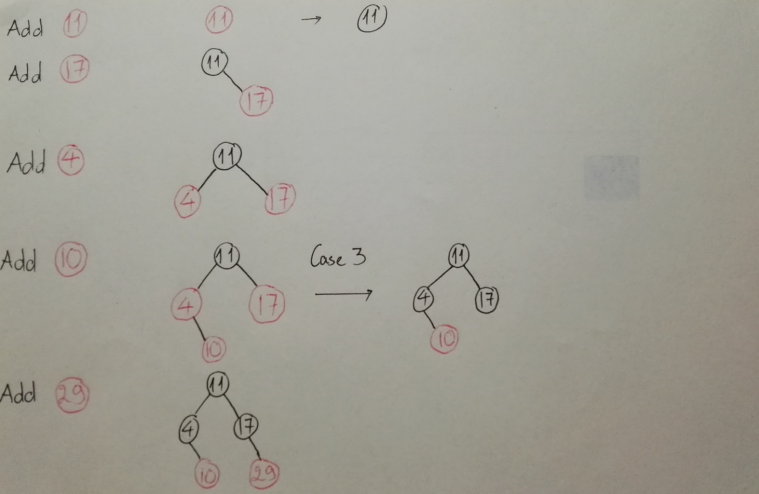 Add 11 11 → 11
Add 17 11
17
Add 4 11
4 17
Add 10 11 Case 3 → 11
4 17 4 17
10 10
Add 29 11
4 17
10 29